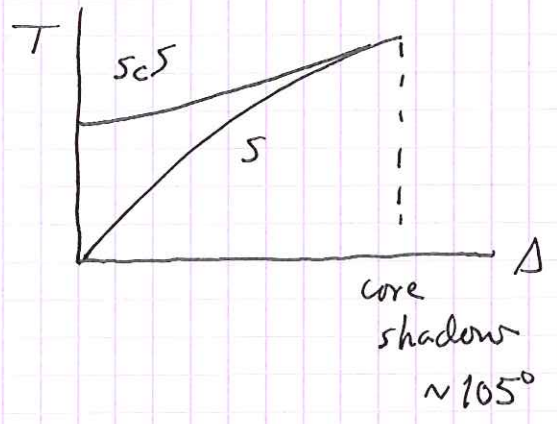 T
ScS
S
Δ
core
shadow
~105°